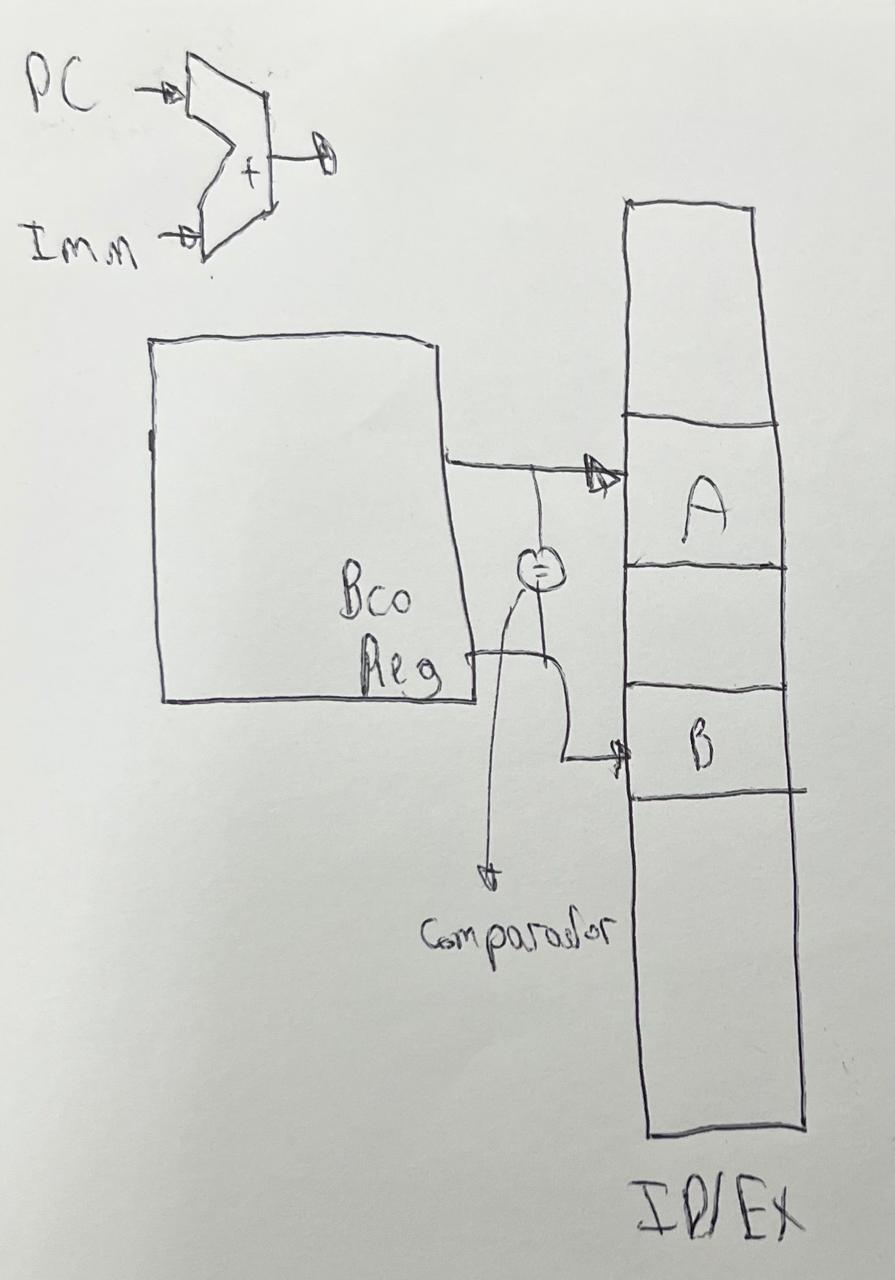 PC
+
Imm
A
=
Bco
Reg
B
Comparador
ID/EX